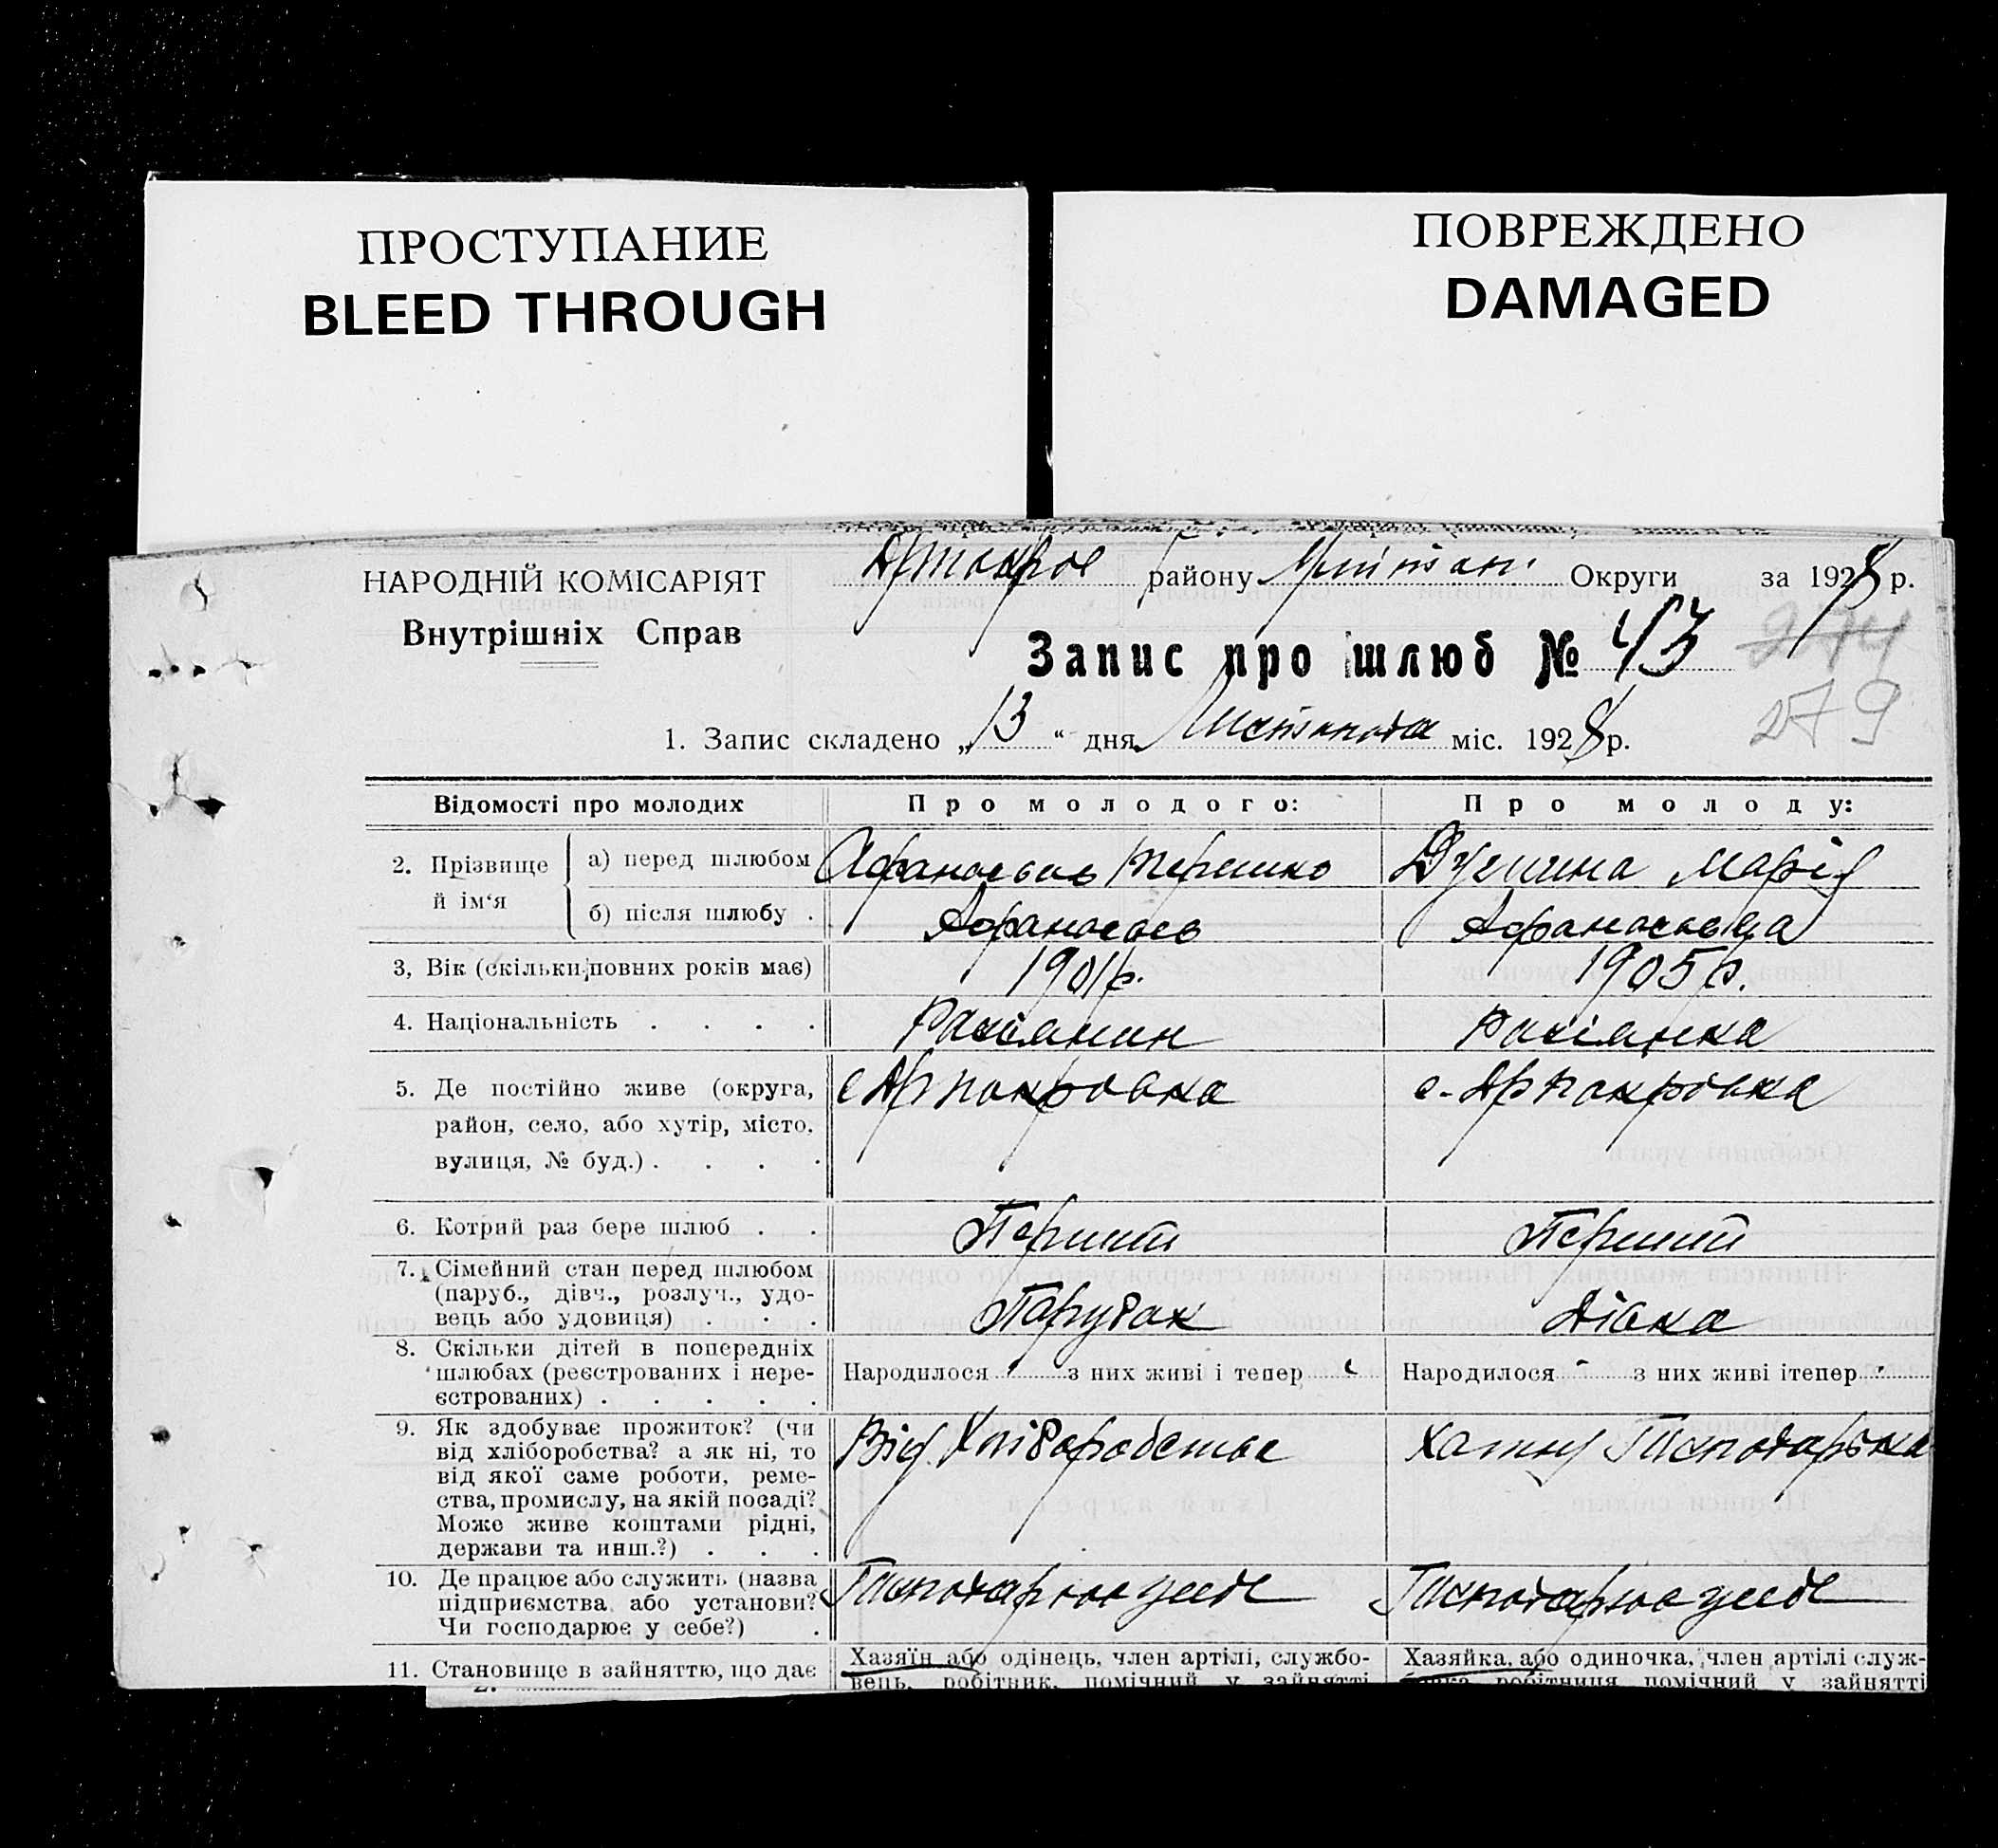 ПРОСТУПАНИЕ
BLEED THROUGH
ПОВРЕЖДЕНО
DAMAGED
НАРОДНІЙ КОМІСАРІЯТ
Внутрішніх Справ
району Округи за 1928 р.
Запис про шлюб № 43
274
279
1. Запис складено „13“ дня Листопада міс. 1928 р.
Відомості про молодих
Про молодого:
Про молоду:
2. Прізвище й ім‘я
а) перед шлюбом
Марія
б) після шлюбу .
3, Вік (скільки повних років має)
1901 р.
1905 р.
4. Національність . . . .
Росіянин
Росіянка
5. Де постійно живе (округа,
район, село, або хутір, місто,
вулиця, № буд.) . . . .
6. Котрий раз бере шлюб . .
Перший
Перший
7. Сімейний стан перед шлюбом
(паруб., дівч., розлуч., удо-
вець або удовиця) . . .
Парубок
Дівка
8. Скільки дітей в попередніх
шлюбах (реєстрованих і нере-
єстрованих) . . . . .
Народилося - з них живі і тепер -
Народилося - з них живі ітепер -
9. Як здобуває прожиток? (чи
від хліборобства? а як ні, то
від якої саме роботи, реме-
ства, промислу, на якій посаді?
Може живе коштами рідні,
держави та инш.?) . . .
Від Хліборобства
10. Де працює або служить (назва
підприємства або установи?
Чи господарює у себе?) .
11. Становище в зайняттю, що дає
Хазяїн або одінець, член артілі, службо-
вець, робітник, помічний у зайнятті
Хазяйка, або одиночка, член артілі служ-
бовка робітниця помічний у зайнятті